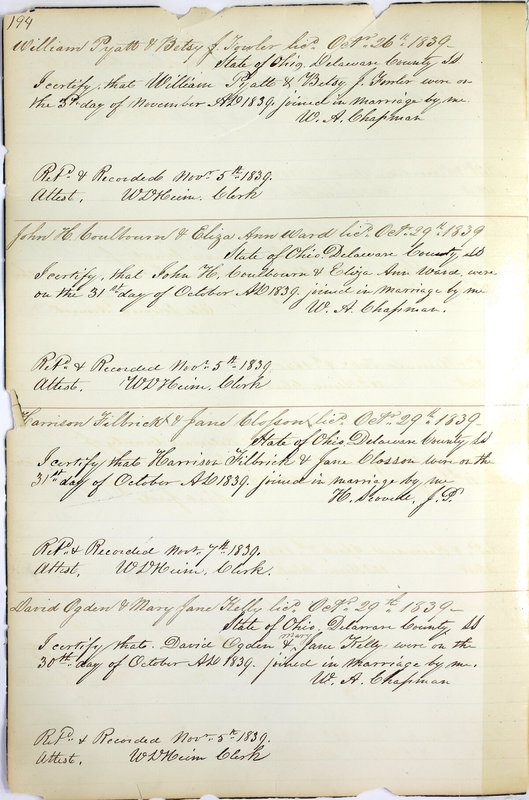 194
William Pyatt & Betsy J. Fowler lic'd. Oct'r. 26th. 1839
State of Ohio, Delaware County, SS
I certify, that William Pyatt & Betsy J. Fowler were on
the 3rd day of November AD 1839. joined in marriage by me.
W. A. Chapman
Ret'd. & Recorded Nov'r. 5th. 1839.
Attest, W D Heim, Clerk
John H. Coulbourn & Eliza Ann Ward lic'd. Oct'r. 29th. 1839
State of Ohio, Delaware County, SS
I certify, that John H. Coulbourn & Eliza Ann Ward, were
on the 31st day of October AD 1839. joined in marriage by me
W. A. Chapman.
Ret'd. & Recorded Nov'r. 5th. 1839
Attest. W D Heim, Clerk
Harrison Filbrick & Jane Closson, lic'd. Oct'r. 29th. 1839
State of Ohio, Delaware County, SS
I certify that Harrison Filbrick & Jane Closson were on the
31st day of October AD 1839. joined in marriage by me
H. Scovell, J. P.
Ret'd. & Recorded Nov'r. 7th. 1839.
Attest. W D Heim, Clerk.
David Ogden & Mary Jane Kelly lic'd. Oct'r. 29th. 1839
State of Ohio, Delaware County, SS
I certify that. David Ogden & Mary Jane Kelly were on the
30th. day of October AD 1839. joined in marriage by me.
W. A. Chapman
Ret'd. & Recorded Nov'r. 5th. 1839.
Attest. W D Heim Clerk